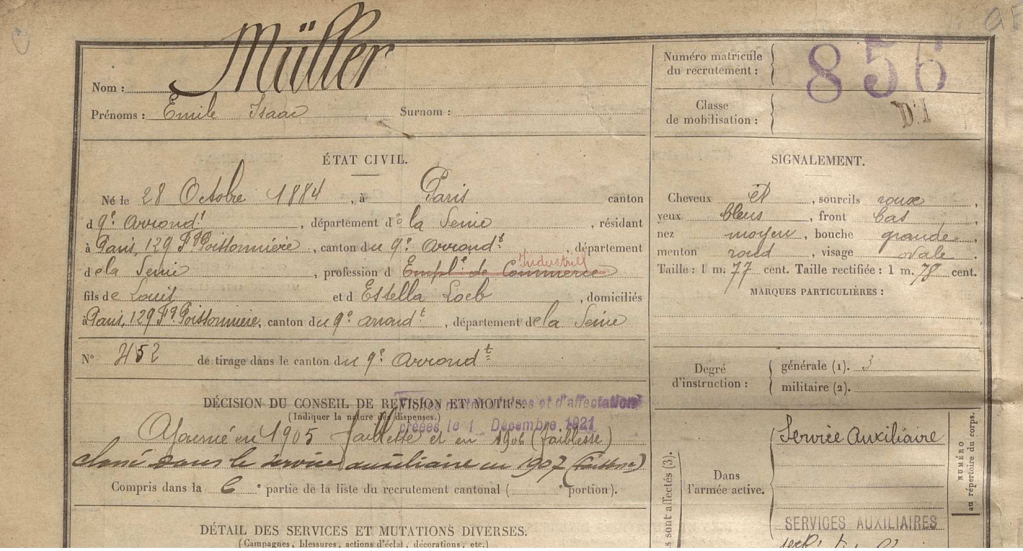 Nom : Müller
Prénoms : Emile Isaac Surnom :
Numéro matricule du recrutement : 856
Classe de mobilisation :
D1
ÉTAT CIVIL.
Né le 28 Octobre 1884, à Paris canton
d 9e Arrondt, département de la Seine, résidant
à Paris, 129 Fg Poissonnière, canton du 9e Arrondt, département
Industriel
de la Seine, profession d Emplé de Commerce
fils de Louis et d Estella Loeb, domiciliés
à Paris, 129 Fg Poissonnière, canton du 9e arrondt, département de la Seine
No 452 de tirage dans le canton du 9e Arrondt
SIGNALEMENT.
Cheveux et, sourcils roux
yeux bleus, front bas
nez moyen, bouche grande
menton rond, visage ovale
Taille : 1 m. 77 cent. Taille rectifiée : 1 m. 78 cent.
MARQUES PARTICULIÈRES :
Degré d'instruction : générale (1). 3
militaire (2).
DÉCISION DU CONSEIL DE REVISION ET MOTIFS.
(Indiquer la nature des dispenses.)
et d'affectation
créées le 1 Décembre 1921
Ajourné en 1905 faiblesse et en 1906 (faiblesse)
classé dans le service auxiliaire en 1907
Compris dans la 6e partie de la liste du recrutement cantonal ( portion).
DÉTAIL DES SERVICES ET MUTATIONS DIVERSES.
(Campagnes, blessures, actions d'éclat, décorations, etc.)
Dans l'armée active.
Service Auxiliaire
SERVICES AUXILIAIRES
NUMÉRO au répertoire du corps.
s sont affectés (3).